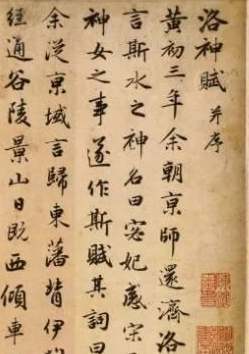 洛神賦 并序
黃初三年余朝京師還濟洛
言斯水之神名曰宓妃感宋
神女之事遂作斯賦其詞曰
余從京域言歸東藩背伊
經通谷陵景山日既西傾車